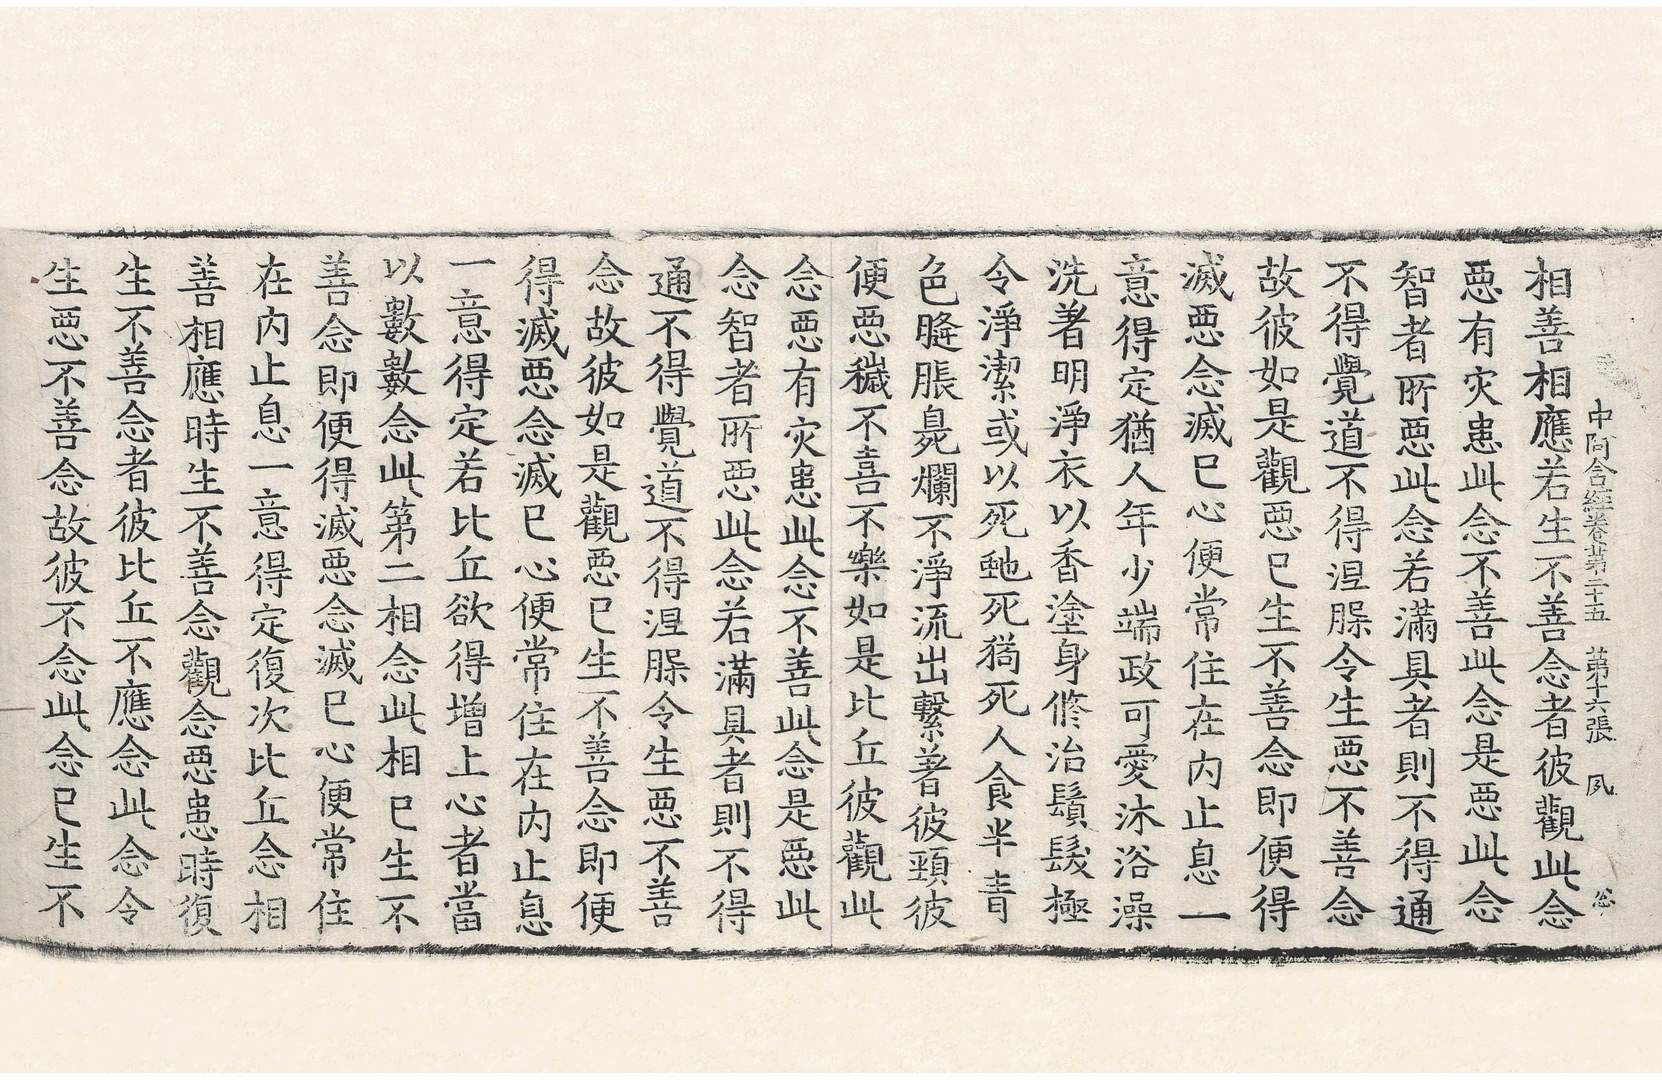 中阿含經卷第二十五　第十六張　夙
相善相應若生不善念者彼觀此念
惡有灾患此念不善此念是惡此念
智者所惡此念若滿具者則不得通
不得覺道不得涅槃令生惡不善念
故彼如是觀惡已生不善念即便得
滅惡念滅已心便常住在内止息一
意得定猶人年少端政可愛沐浴澡
洗著明淨衣以香塗身脩治鬚髮極
令淨潔或以死虵死狗死人食半青
色膖脹臭爛不淨流出繫著彼頸彼
便惡穢不喜不樂如是比丘彼觀此
念惡有灾患此念不善此念是惡此
念智者所惡此念若滿具者則不得
通不得覺道不得涅槃令生惡不善
念故彼如是觀惡已生不善念即便
得滅惡念滅已心便常住在内止息
一意得定若比丘欲得增上心者當
以數數念此第二相念此相已生不
善念即便得滅惡念滅已心便常住
在内止息一意得定復次比丘念相
善相應時生不善念觀念惡患時復
生不善念者彼比丘不應念此念令
生惡不善念故彼不念此念已生不